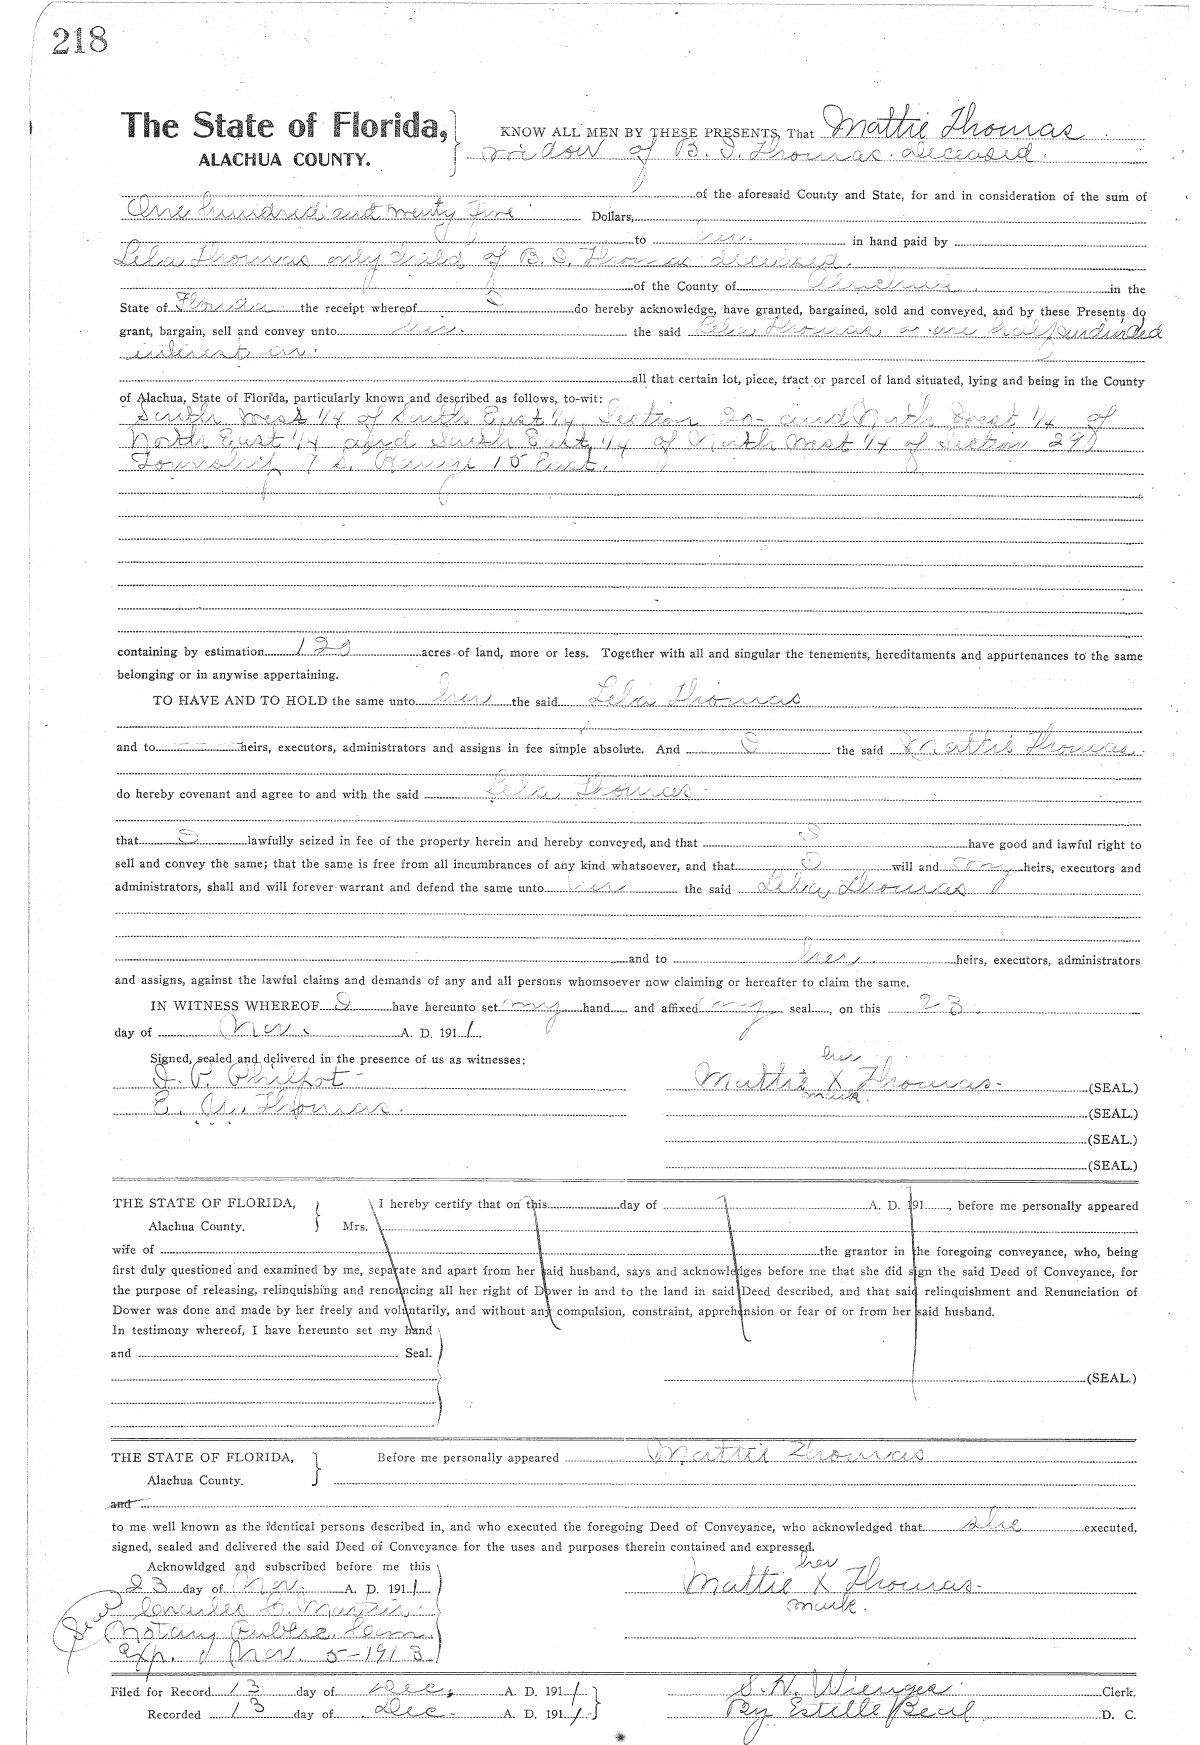 218
The State of Florida, KNOW ALL MEN BY THESE PRESENTS, That Mattie Thomas
ALACHUA COUNTY. widow of B. I. Thomas deceased.
of the aforesaid County and State, for and in consideration of the sum of
One hundred and twenty five Dollars,
to her in hand paid by
Lela Thomas only child of B. I. Thomas deceased.
of the County of Alachua in the
State of Florida the receipt whereof I do hereby acknowledge, have granted, bargained, sold and conveyed, and by these Presents do
grant, bargain, sell and convey unto her the said Lela Thomas a one half undivided
interest in
all that certain lot, piece, tract or parcel of land situated, lying and being in the County
of Alachua, State of Florida, particularly known and described as follows, to-wit:
South West 1/4 of South East 1/4 Section 20 - and North West 1/4 of
North East 1/4 and South East 1/4 of North West 1/4 of Section 29
Township 7 S. Range 18 East.
containing by estimation 120 acres of land, more or less. Together with all and singular the tenements, hereditaments and appurtenances to the same
belonging or in anywise appertaining.
TO HAVE AND TO HOLD the same unto her the said Lela Thomas
and to - - - heirs, executors, administrators and assigns in fee simple absolute. And I the said Mattie Thomas
do hereby covenant and agree to and with the said Lela Thomas
that I lawfully seized in fee of the property herein and hereby conveyed, and that I have good and lawful right to
sell and convey the same; that the same is free from all incumbrances of any kind whatsoever, and that I will and my heirs, executors and
administrators, shall and will forever warrant and defend the same unto her the said Lela Thomas
and to her heirs, executors, administrators
and assigns, against the lawful claims and demands of any and all persons whomsoever now claiming or hereafter to claim the same.
IN WITNESS WHEREOF I have hereunto set my hand and affixed my seal, on this 23
day of Nov. A. D. 1911
Signed, sealed and delivered in the presence of us as witnesses:
her
I. P. Philpot - Mattie X Thomas - (SEAL.)
mark.
E. W. Thomas. (SEAL.)
(SEAL.)
(SEAL.)
THE STATE OF FLORIDA, I hereby certify that on this day of A. D. 191 , before me personally appeared
Alachua County. Mrs.
wife of the grantor in the foregoing conveyance, who, being
first duly questioned and examined by me, separate and apart from her said husband, says and acknowledges before me that she did sign the said Deed of Conveyance, for
the purpose of releasing, relinquishing and renouncing all her right of Dower in and to the land in said Deed described, and that said relinquishment and Renunciation of
Dower was done and made by her freely and voluntarily, and without any compulsion, constraint, apprehension or fear of or from her said husband.
In testimony whereof, I have hereunto set my hand
and Seal.
(SEAL.)
THE STATE OF FLORIDA, Before me personally appeared Mattie Thomas
Alachua County.
and
to me well known as the identical persons described in, and who executed the foregoing Deed of Conveyance, who acknowledged that she executed,
signed, sealed and delivered the said Deed of Conveyance for the uses and purposes therein contained and expressed.
Acknowldged and subscribed before me this her
23 day of Nov. A. D. 1911 Mattie X Thomas -
Seal Charles C. Martin. mark.
Notary Public. Com.
Exp. Nov. 5 - 1913
Filed for Record 13 day of Dec, A. D. 1911 S. H. Wienges Clerk.
Recorded 13 day of Dec - A. D. 1911 By Estelle Beal D. C.